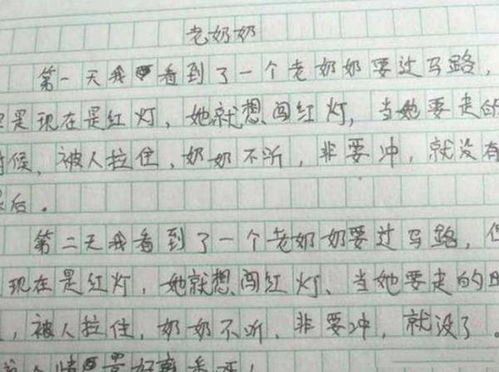 老奶奶
第一天我看到了一个老奶奶要过马路,
是现在是红灯,她就想闯红灯,当她要走的
时候,被人拉住,奶奶不听,非要冲,就没有
后。
第二天我看到了一个老奶奶要过马路,
现在是红灯,她就想闯红灯、当她要走的时
,被人拉住,奶奶不听、非要冲,就没了。